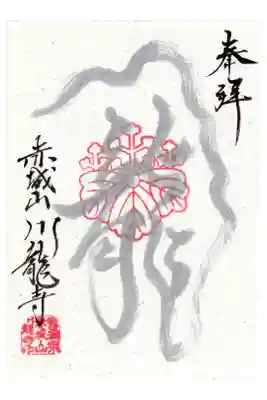 奉拝
龍
赤城山 川龍寺